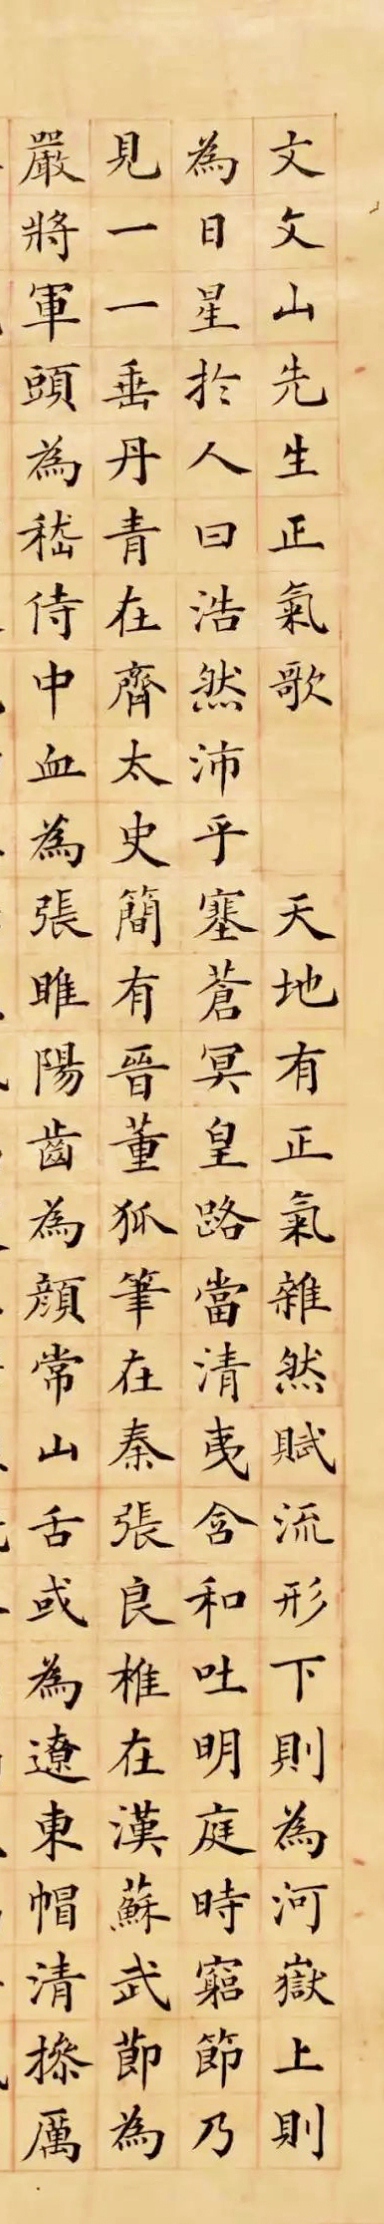 文文山先生正氣歌　　天地有正氣雜然賦流形下則為河嶽上則
為日星於人曰浩然沛乎塞蒼冥皇路當清夷含和吐明庭時窮節乃
見一一垂丹青在齊太史簡有晉董狐筆在秦張良椎在漢蘇武節為
嚴將軍頭為嵇侍中血為張睢陽齒為顏常山舌或為遼東帽清操厲